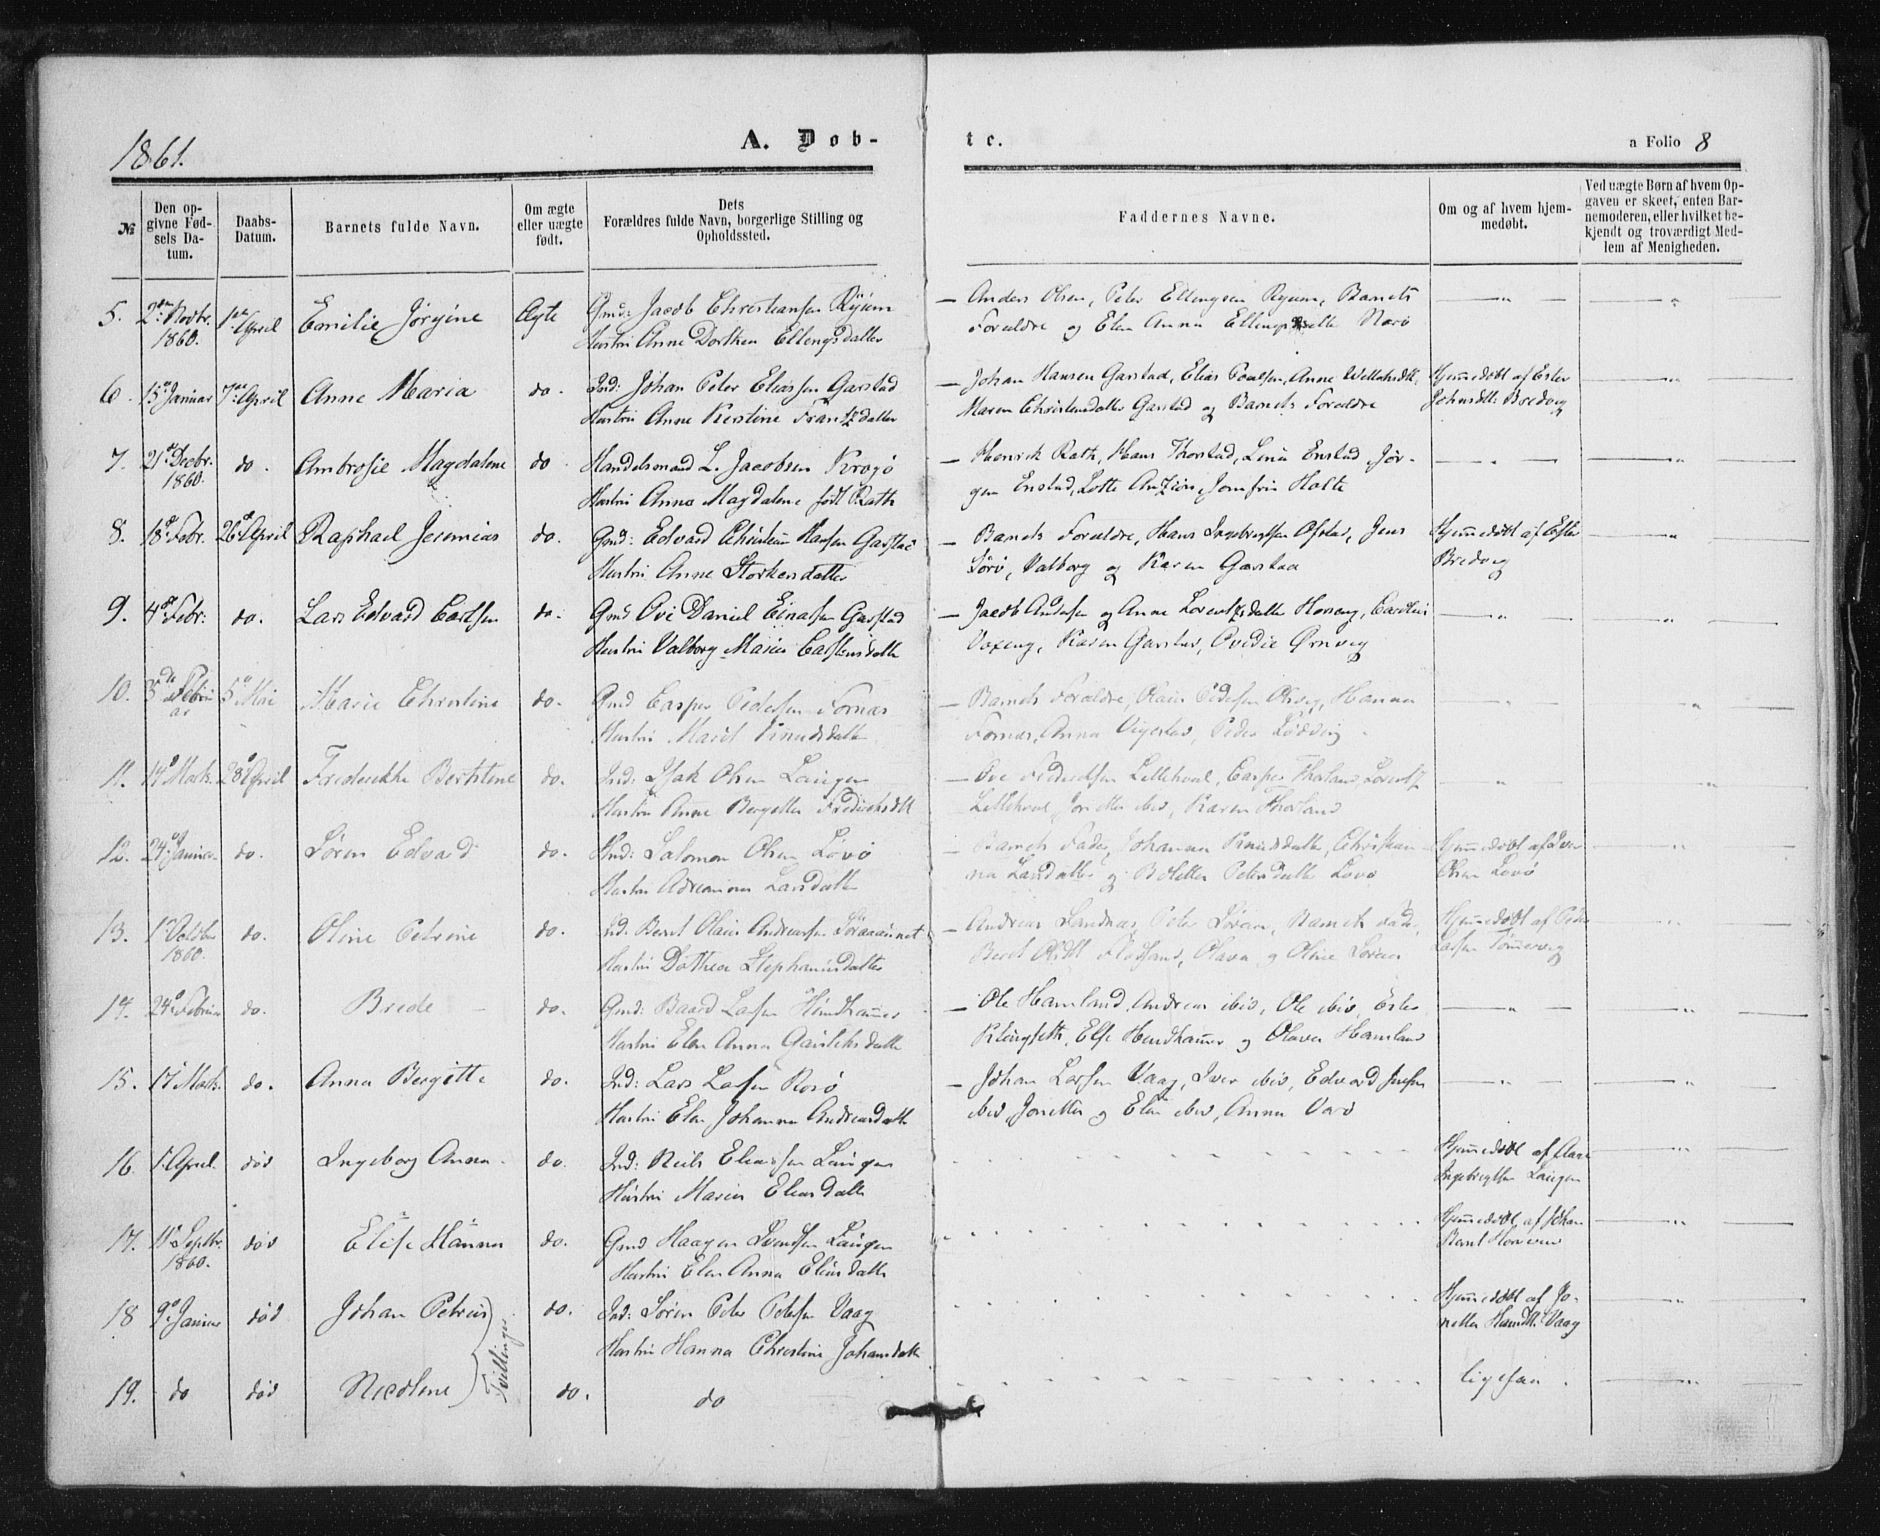 1861.
A. Dob-
te.
a Folio 8
№
Den op-
givne Fød-
sels Da-
tum.
Daabs-
Datum.
Barnets fulde Navn.
Om ægte
eller uægte
født.
Dets
Forældres fulde Navn, borgerlige Stilling og
Opholdssted.
Faddernes Navne.
Om og af hvem hjem-
medøbt.
Ved uægte Børn af hvem Op-
gaven er skeet, enten Bar-
nemoderen, eller hvilket be-
kjendt og troværdigt Med-
lem af Menigheden.
5. 2den Novbr. 1860. 1ste April Emilie Jørgine Ægte Gmd: Jacob Christiansen Ryum
Hustru Anne Dorthea Ellingsdatter
– Anders Olsen, Peter Ellingsen Ryum, Barnets
Forældre og Elen Anna Ellingsdatter Nærø
6. 15de Januar 7de April Anne Maria do. Ind: Johan Peter Eliassen Garstad
Hustru Anne Kirstine Frantzdatter
– Johan Hansen Garstad, Elias Poulsen, Anne
Maren Christensdatter Garstad og Barnets Forældre
Hjemmedøbt af Ester
Johnsdtt: Bredveg
7. 21de Decbr. 1860. do. Ambrosie Magdalene do. Handelsmand L. Jacobsen Krogø
Hustru Anna Magdalene født Rath
– Henrik Rath, Hans Thorstad, Lina Enstad, Jør-
gen Enstad, Lotte Anzion, Jomfru Holte
8. 18de Febr. 26de April Raphael Jeremias do. Gmd: Edvard Christian Hansen Garstad
Hustru Anne Storkersdatter
– Barnets Forældre, Hans Ingebrigtsen Ofstad, Jens
Sørø, Valborg og Karen Garstad
Hjemmedøbt af Ester
Bredveg
9. 4de Febr. do. Lars Edvard Carlsen do. Gmd Ove Daniel Einarsen Garstad
Hustru Valborg Maria Carstensdatter
– Jacob Andersen og Anne Lorentzdatter Horseng, Caroline
Voxeng, Karen Garstad, Ovidie Ørnveg
10. 3de Februar 5te Mai Marie Christine do. Gmd Casper Pedersen Fornæs
Hustru Marit Knudsdatter
– Barnets Forældre, Olaus Pedersen, Hanna
Fornæs, Anna, Peder Lødding
11. 14de Marts. 28de April Frederikke Berntine do. Ind: Isak Olsen Laugen
Hustru Anne Bergitte Fredriksdtt
– Ove Fredriksen Lillehval, Casper Thorland, Lorentz
Lillehval, Jonetta ibid, Karen Thorland
12. 24de Januar do. Søren Edvard do. Ind: Salomon Olsen Løvø
Hustru Adreanna Larsdatter
– Barnets Fader, Johanna Knudsdatter, Christian-
na Larsdatter og Bolette Petersdatter Løvø
Hjemmedøbt af Iver
Olsen Løvø
13. 1ste Octbr 1860. do. Oline Petrine do. Ind: Bernt Olaus Andreassen
Hustru Dorthea Stephansdatter
– Andreas Sandnæs, Peter, Barnets Fader,
Beret, Olava og Oline
Hjemmedøbt af Peder
Larsen Tømmerveg
14. 24de Februar do. Brede – do. Gmd: Baard Larsen Hundhammer
Hustru Elen Anna
– Ole Hamland, Andreas ibid, Ole ibid, Ester
Klingseth, Else Hundhammer og Olava Hamland
15. 17de Marts. do. Anna Bergitte do. Ind: Lars Larsen Rosø
Hustru Elen Johanna Andreasdatter
– Johan Larsen Vaag, Iver ibid, Edvard Jensen
ibid, Jonetta og Elen ibid, Anna Værø
16. 1ste April. død Ingeborg Anna do. Ind: Neils Eliassen Laugen
Hustru Maria Eliasdatter
Hjemmedøbt af
Ingebrigtsen Laugen
17. Septbr. 1860. død Elise Hanna do. Gmd Haagen Svendsen Laugen
Hustru Elen Anna Eliasdatter
Hjemmedøbt af Johan
Bernt
18 9de Januar død Johan Petrus do. Ind: Søren Peter Petersen Vaag
Hustru Hanna Christine Johansdatter
Hjemmedøbt af Jo-
netta Hansdtt: Vaag
Tvillinger
19. do død Nicoline do. do
ligesaa.